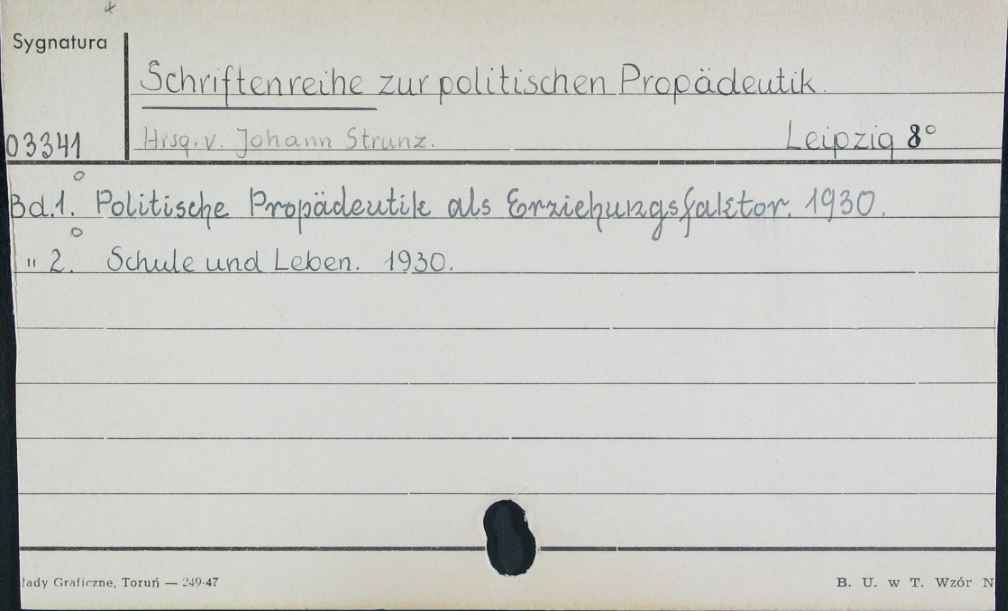 Sygnatura
Schriftenreihe zur politischen Propädeutik.
03341 Hrsg. v. Johann Strunz. Leipzig 8°
Bd.1. Politische Propädeutik als Erziehungsfaktor. 1930.
" 2. Schule und Leben. 1930.
łady Graficzne, Toruń — 249-47 B. U. w T. Wzór N